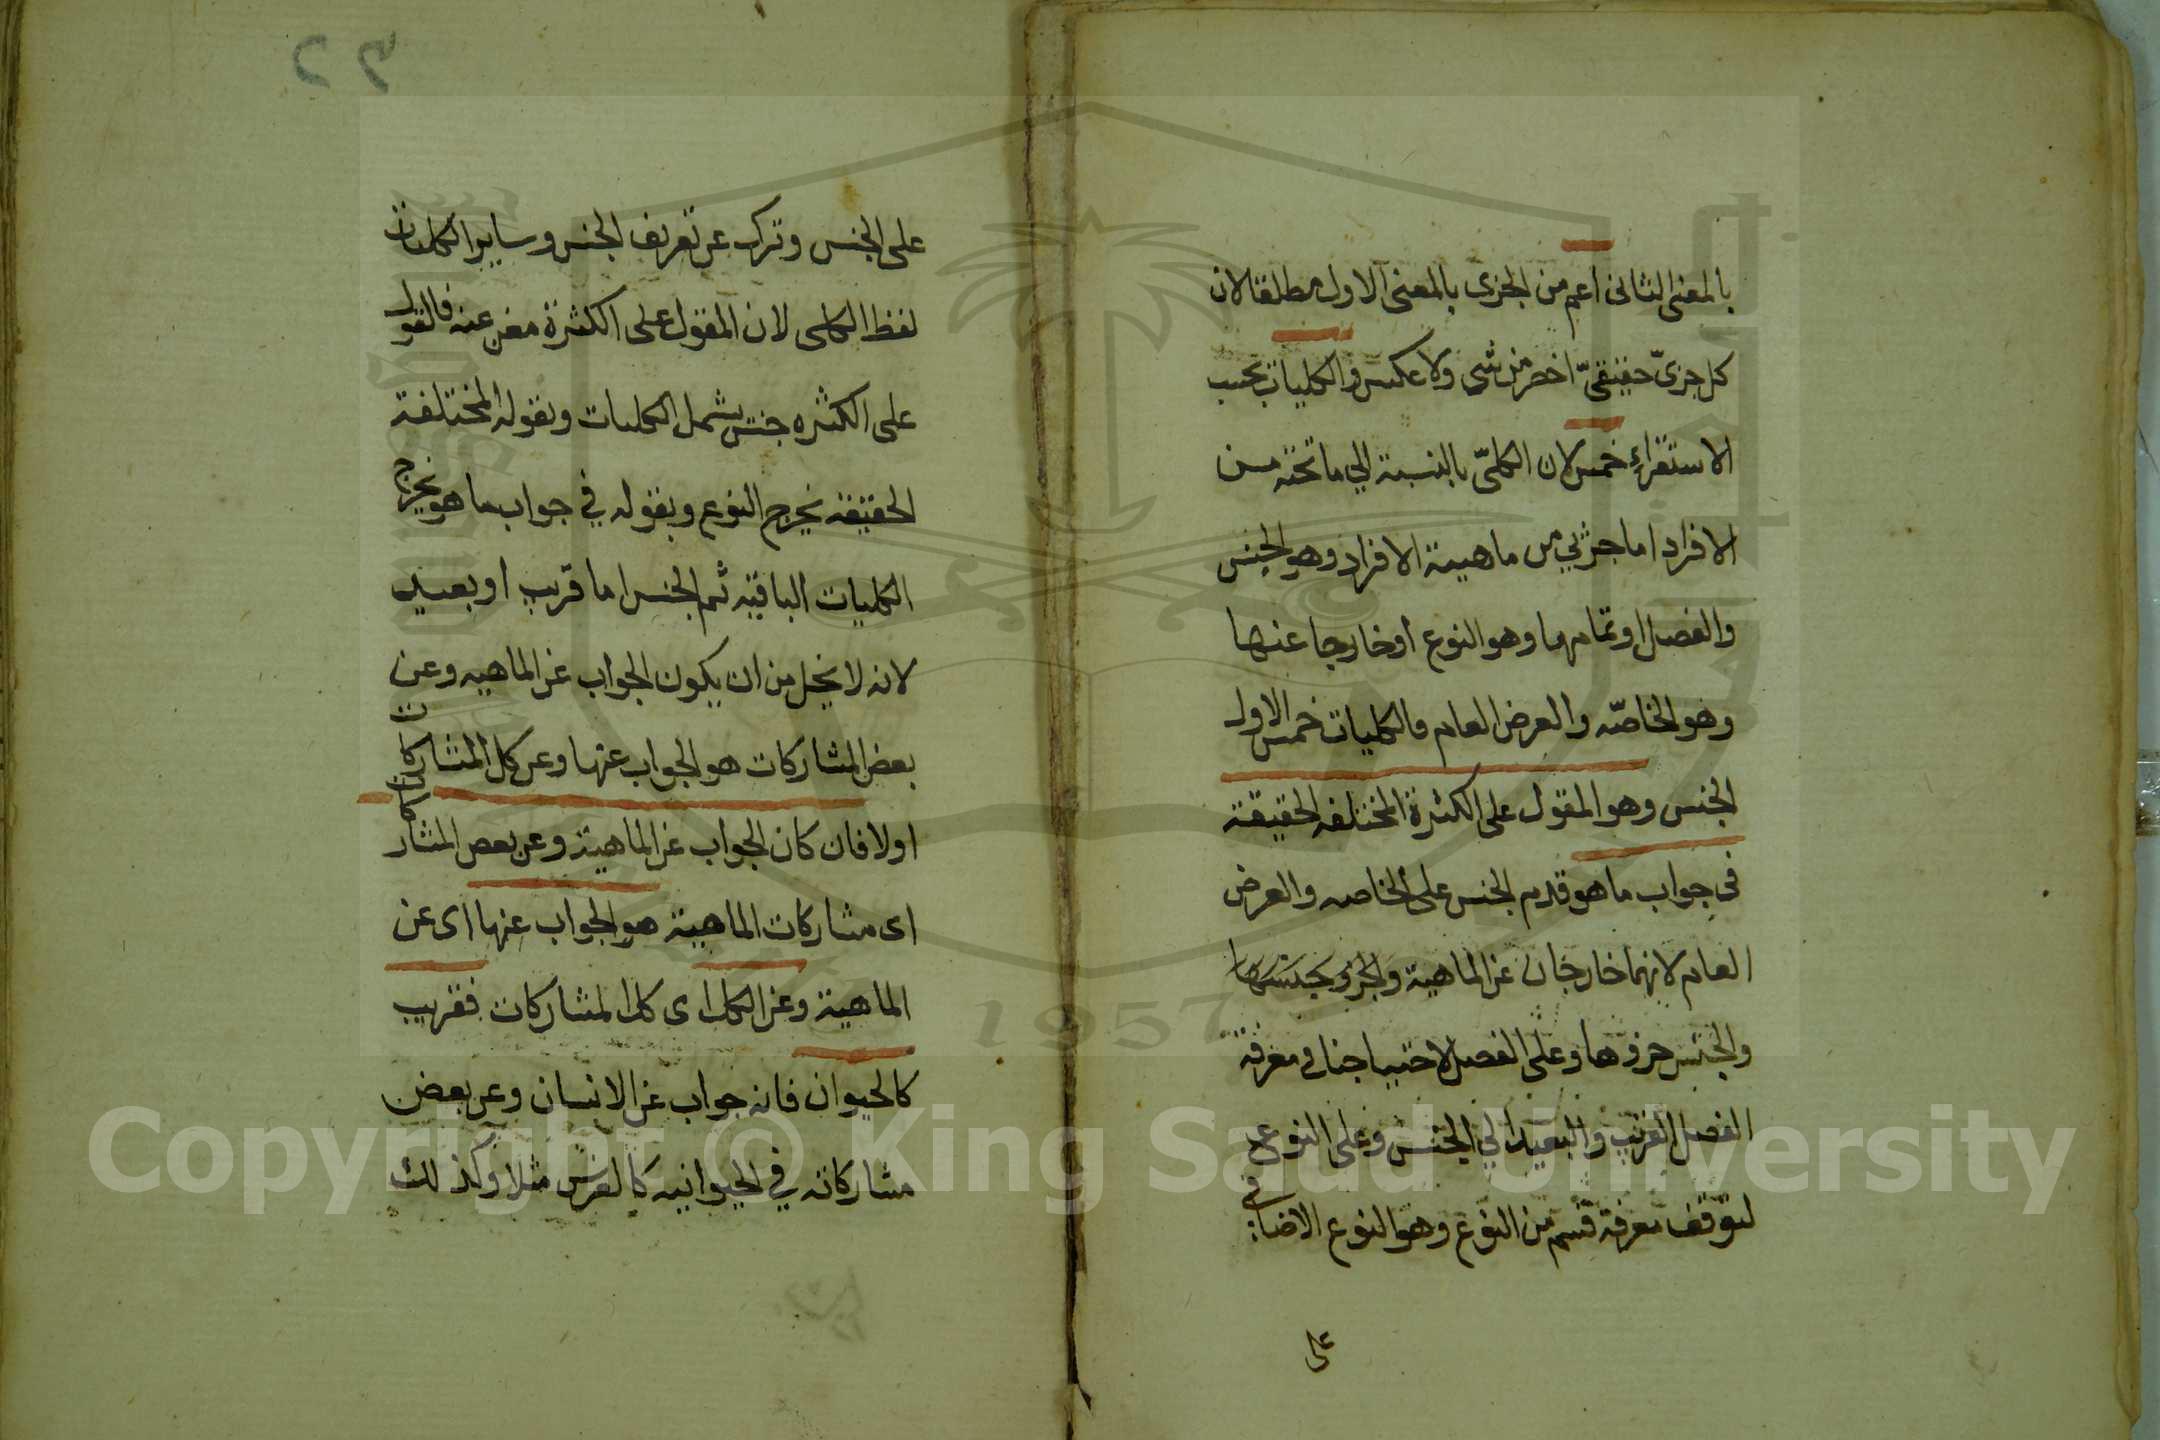 بالمعنى الثانى اعم من الجزى بالمعنى الاول مطلقا لان
كل جزىّ حقيقىّ اخص من شى ولا عكس والكليات بحسب
الاستقراء خمس لان الكلىّ بالنسبة الي ما تحته من
الافراد اما جزئي من ماهية الافراد وهو الجنس
والفصل او تمامها وهو النوع أو خارجا عنها
وهو الخاصّه والعرض العام فالكليات خمس الاول
الجنس وهو المقول على الكثرة المختلفه الحقيقة
فى جواب ما هو قدم الجنس على الخاصه والعرض
العام لانهما خارجان عن الماهية والجزو
والجنس جزوها وعلى الفصل لاحتياجنا فى معرفة
الفصل القريب والبعيد الي الجنس وعلى النوع
لتوقف معرفة قسم من النوع وهو النوع الاضافي
على
٤٢
على الجنس وترك عن تعريف الجنس وساير الكليات
لفظ الكلى لان المقول على الكثرة مغن عنه فالقول
على الكثره جنس يشمل الكليات وبقوله المختلفة
الحقيقه يخرج النوع وبقوله في جواب ما هو يخرج
الكليات الباقيه ثم الجنس اما قريب او بعيد
لانه لا يخل من ان يكون الجواب عن الماهيه وعن
بعض المشاركات هو الجواب عنها وعن كل المشاركات
اولا فان كان الجواب عن الماهية وعن بعض المشاركات
اى مشاركات الماهية هو الجواب عنها اى عن
الماهية وعن الكل اى كل المشاركات فقريب
كالحيوان فانه جواب عن الانسان وعن بعض
مشاركاته في الحيوانيه كالفرس مثلا وكذلك
1957
Copyright © King Saud University